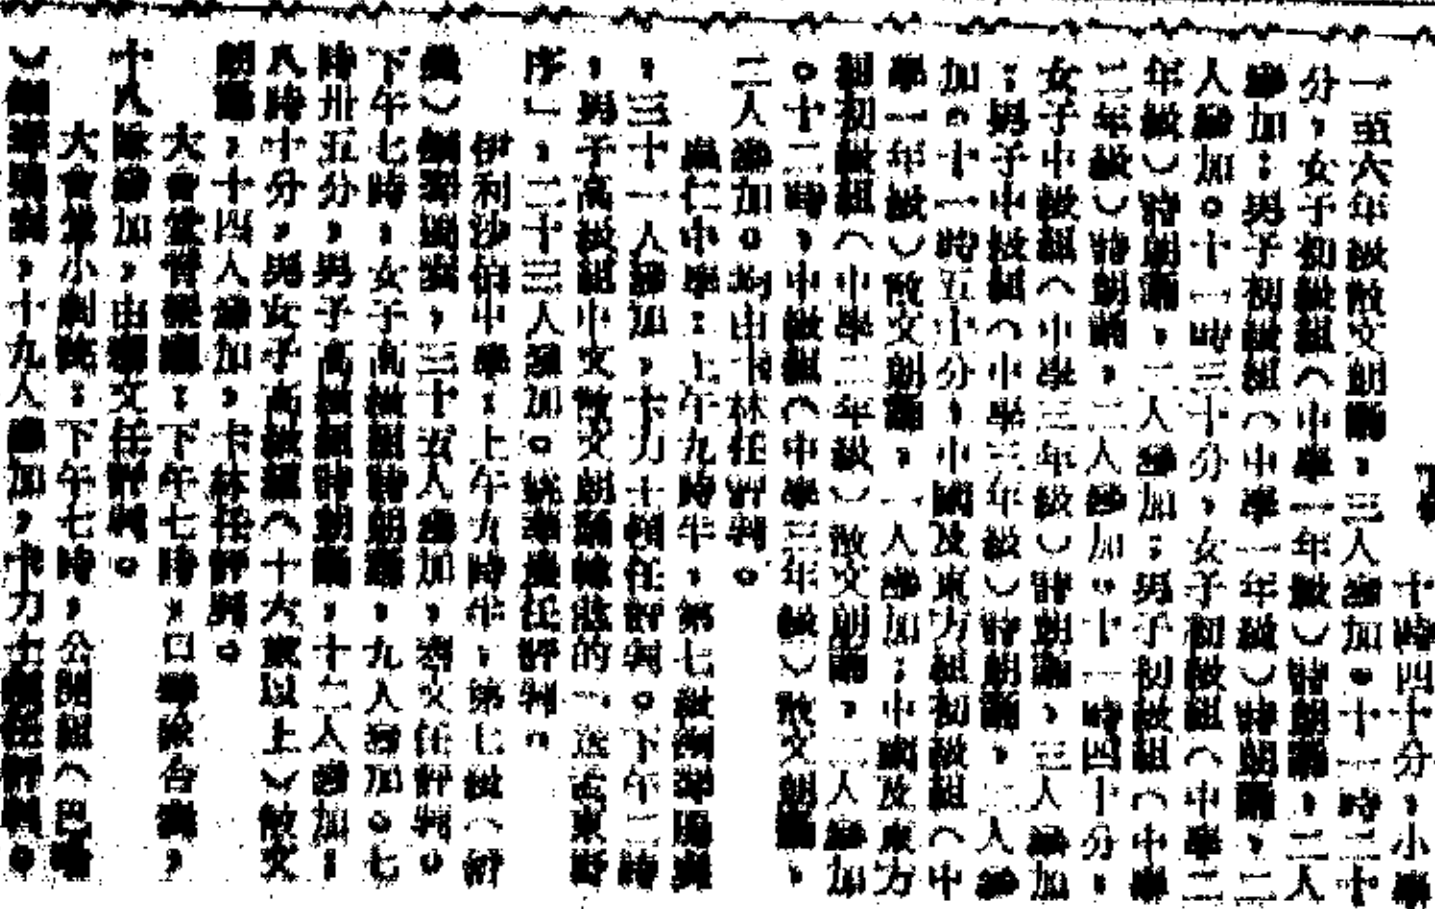 十時四十分，小學
一至六年級散文朗誦，三人參加。十一時二十
分，女子初級組（中學一年級）詩朗誦，二人
參加；男子初級組（中學一年級）詩朗誦，二
人參加。十一時三十分，女子初級組（中學二
年級）詩朗誦，二人參加；男子初級組（中學
二年級）詩朗誦，二人參加。十一時四十分，
女子中級組（中學三年級）詩朗誦，三人參加
；男子中級組（中學三年級）詩朗誦，二人參
加。十一時五十分，中國及東方組初級組（中
學一年級）散文朗誦，一人參加；中國及東方
組初級組（中學二年級）散文朗誦，二人參加
。十二時，中級組（中學三年級）散文朗誦，
二人參加。均由卡林任評判。
中學：上午九時半，第七級鋼琴獨奏
，三十一人參加，卡力士任評判。下午二時
，男子高級組中文散文朗誦的「送孟東野
序」，二十三人參加。任評判。
伊利沙伯中學：上午九時半，第七級（
）鋼琴獨奏，三十五人參加，文任評判。
下午七時，女子高級組詩朗誦，九人參加。七
時卅五分，男子高級組詩朗誦，十二人參加；
八時十分，男女子高級組（十六歲以上）散文
朗誦，十四人參加，卡林任評判。
大會堂音樂廳：下午七時，口琴隊合奏，
十八隊參加，由文任評判。
大會堂小劇院：下午七時，公開組（巴
）鋼琴獨奏，十九人參加，卡力士任評判。